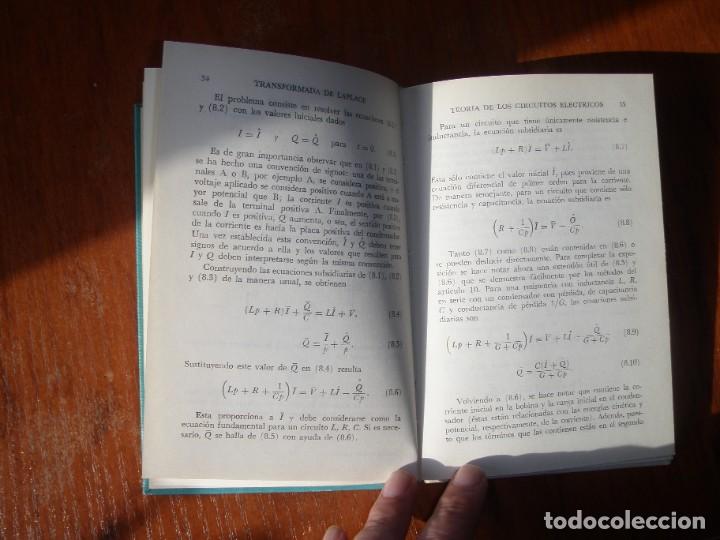 34
TRANSFORMADA DE LAPLACE
El problema consiste en resolver las ecuaciones (8.1)
y (8.2) con los valores iniciales dados
I = Î y Q = Q̂ para t = 0. (8.3)
Es de gran importancia observar que en (8.1) y (8.2)
se ha hecho una convención de signos: una de las termi-
nales A o B, por ejemplo A, se considera positiva, y el
voltaje aplicado se considera positivo cuando A está a ma-
yor potencial que B; la corriente I es positiva cuando
sale de la terminal positiva A. Finalmente, por (8.2),
cuando I es positiva, Q aumenta, o sea, el sentido positivo
de la corriente es hacia la placa positiva del condensador.
Una vez establecida esta convención, Î y Q̂ deben tener
signos de acuerdo a ella y los valores que resulten para
I y Q deben interpretarse según la misma convención.
Construyendo las ecuaciones subsidiarias de (8.1), (8.2)
y (8.3) de la manera usual, se obtienen
(Lp + R)Ī + Q̄/C = LÎ + V̄, (8.4)
Q̄ = Ī/p + Q̂/p. (8.5)
Sustituyendo este valor de Q̄ en (8.4) resulta
(Lp + R + 1/Cp) Ī = V̄ + LÎ − Q̂/Cp. (8.6)
Esta proporciona a Ī y debe considerarse como la
ecuación fundamental para un circuito L, R, C. Si es nece-
sario, Q̄ se halla de (8.5) con ayuda de (8.6).
TEORIA DE LOS CIRCUITOS ELECTRICOS 35
Para un circuito que tiene únicamente resistencia e
inductancia, la ecuación subsidiaria es
(Lp + R)Ī = V̄ + LÎ. (8.7)
Esta sólo contiene el valor inicial Î, pues proviene de una
ecuación diferencial de primer orden para la corriente.
De manera semejante, para un circuito que contiene sólo
resistencia y capacitancia, la ecuación subsidiaria es
(R + 1/Cp) Ī = V̄ − Q̂/Cp (8.8)
Tanto (8.7) como (8.8) están contenidas en (8.6) o
se pueden deducir directamente. Para completar la expo-
sición se hace notar ahora una extensión útil de (8.5) y
(8.6), que se demuestra fácilmente por los métodos del
artículo 10. Para una resistencia con inductancia L, R,
en serie con un condensador con pérdida, de capacitancia
C y conductancia de pérdida 1/G, las ecuaciones subsi-
diarias son
(Lp + R + 1/G + Cp) Ī = V̄ + LÎ − Q̂/G + Cp (8.9)
Q̄ = C(Ī + Q̂)/G + Cp (8.10)
Volviendo a (8.6), se hace notar que contiene la co-
rriente inicial en la bobina y la carga inicial en el conden-
sador (éstas están relacionadas con las energías cinética y
potencial, respectivamente, de la corriente). Además, pues-
to que los términos que las contienen están en el segundo
todocoleccion
todocoleccion.net